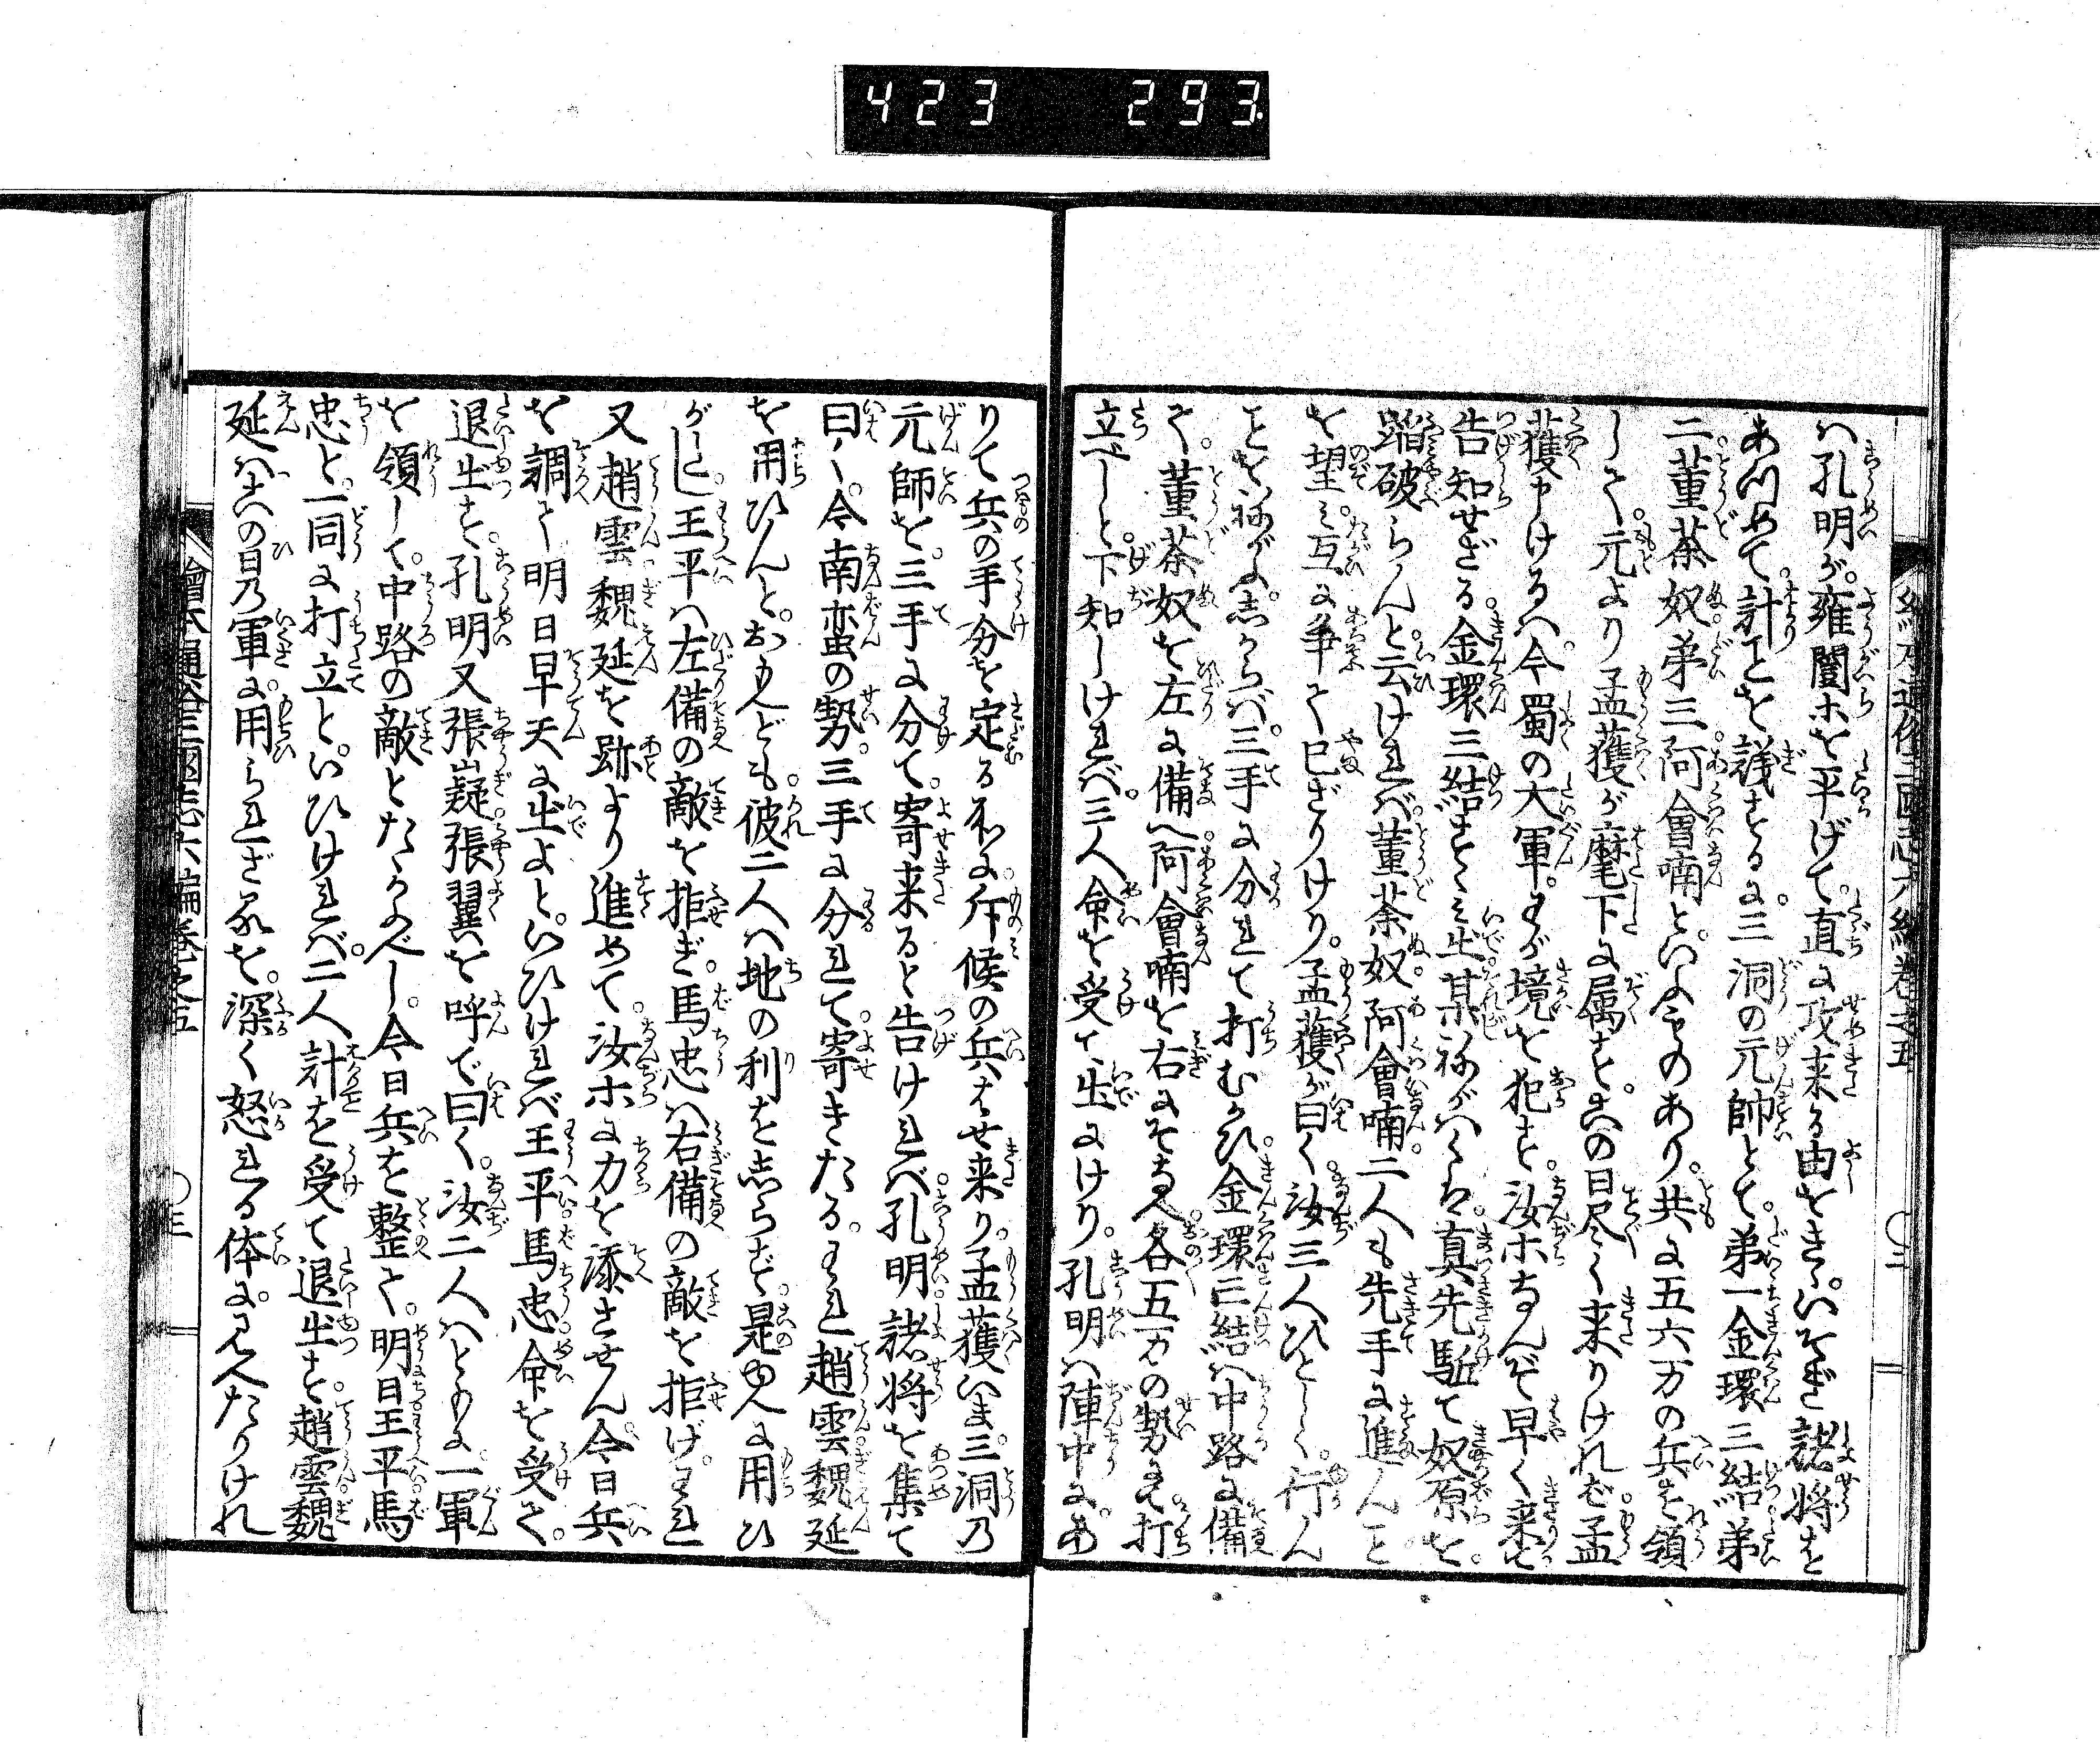 423 293
繪本通俗三國志六編卷之五 〇二
ハ孔明が。雍闓ホを平げて。直に攻来る由をきゝ。いそぎ諸将を
あつめて。計ことを議するに。三洞の元帥とて。第一金環三結第
二董荼奴第三阿會喃といふものあり。共に五六万の兵を領
して。元より孟獲が麾下に属す。この日尽く来りければ。孟
獲申けるハ。今蜀の大軍。わが境を犯す。汝ホなんぞ早く来て
告知せざる。金環三結すゝみ出。某ねがハくハ。真先駈て奴原を。
蹈破らんと云ければ。董荼奴。阿會喃。二人も先手に進んこと
を望ミ。互に争て已ざりけり。孟獲が曰く。汝三人ひとしく。行ん
ことをねがふ。しからバ。三手に分れて打むかひ。金環三結ハ中路に備
て。董荼奴を左に備へ。阿會喃を右にそなへ。各五万の勢にて打
立べしと。下知しければ。三人命を受て出にけり。孔明ハ陣中に。あ
りて兵の手分を定る所に。斥候の兵はせ来り。孟獲いま。三洞乃
元師を。三手に分て。寄来ると告けれべ。孔明諸将を集て
曰く。今南蛮の勢。三手に分れて。寄きたる。われ趙雲魏延
を用ひんと。おもへども。彼二人ハ地の利を志らず。是ゆへに用ひ
がたし。王平ハ左備の敵を拒ぎ。馬忠ハ右備の敵を拒げ。われ
又趙雲魏延を跡より進めて。汝ホに力を添させん。今日兵
を調て明日早天に出よと。いひけれべ。王平馬忠命を受て。
退出す。孔明又張嶷張翼を呼で曰く。汝二人ハともに。一軍
を領して。中路の敵とたゝかふべし。今日兵を整て。明日王平馬
忠と。一同に打立と。いひけれバ。二人計を受て退出す。趙雲魏
延ハこの日乃軍に。用られざるを。深く怒れる体に。見へたりけれ
繪本通俗三國志六編卷之五 〇三